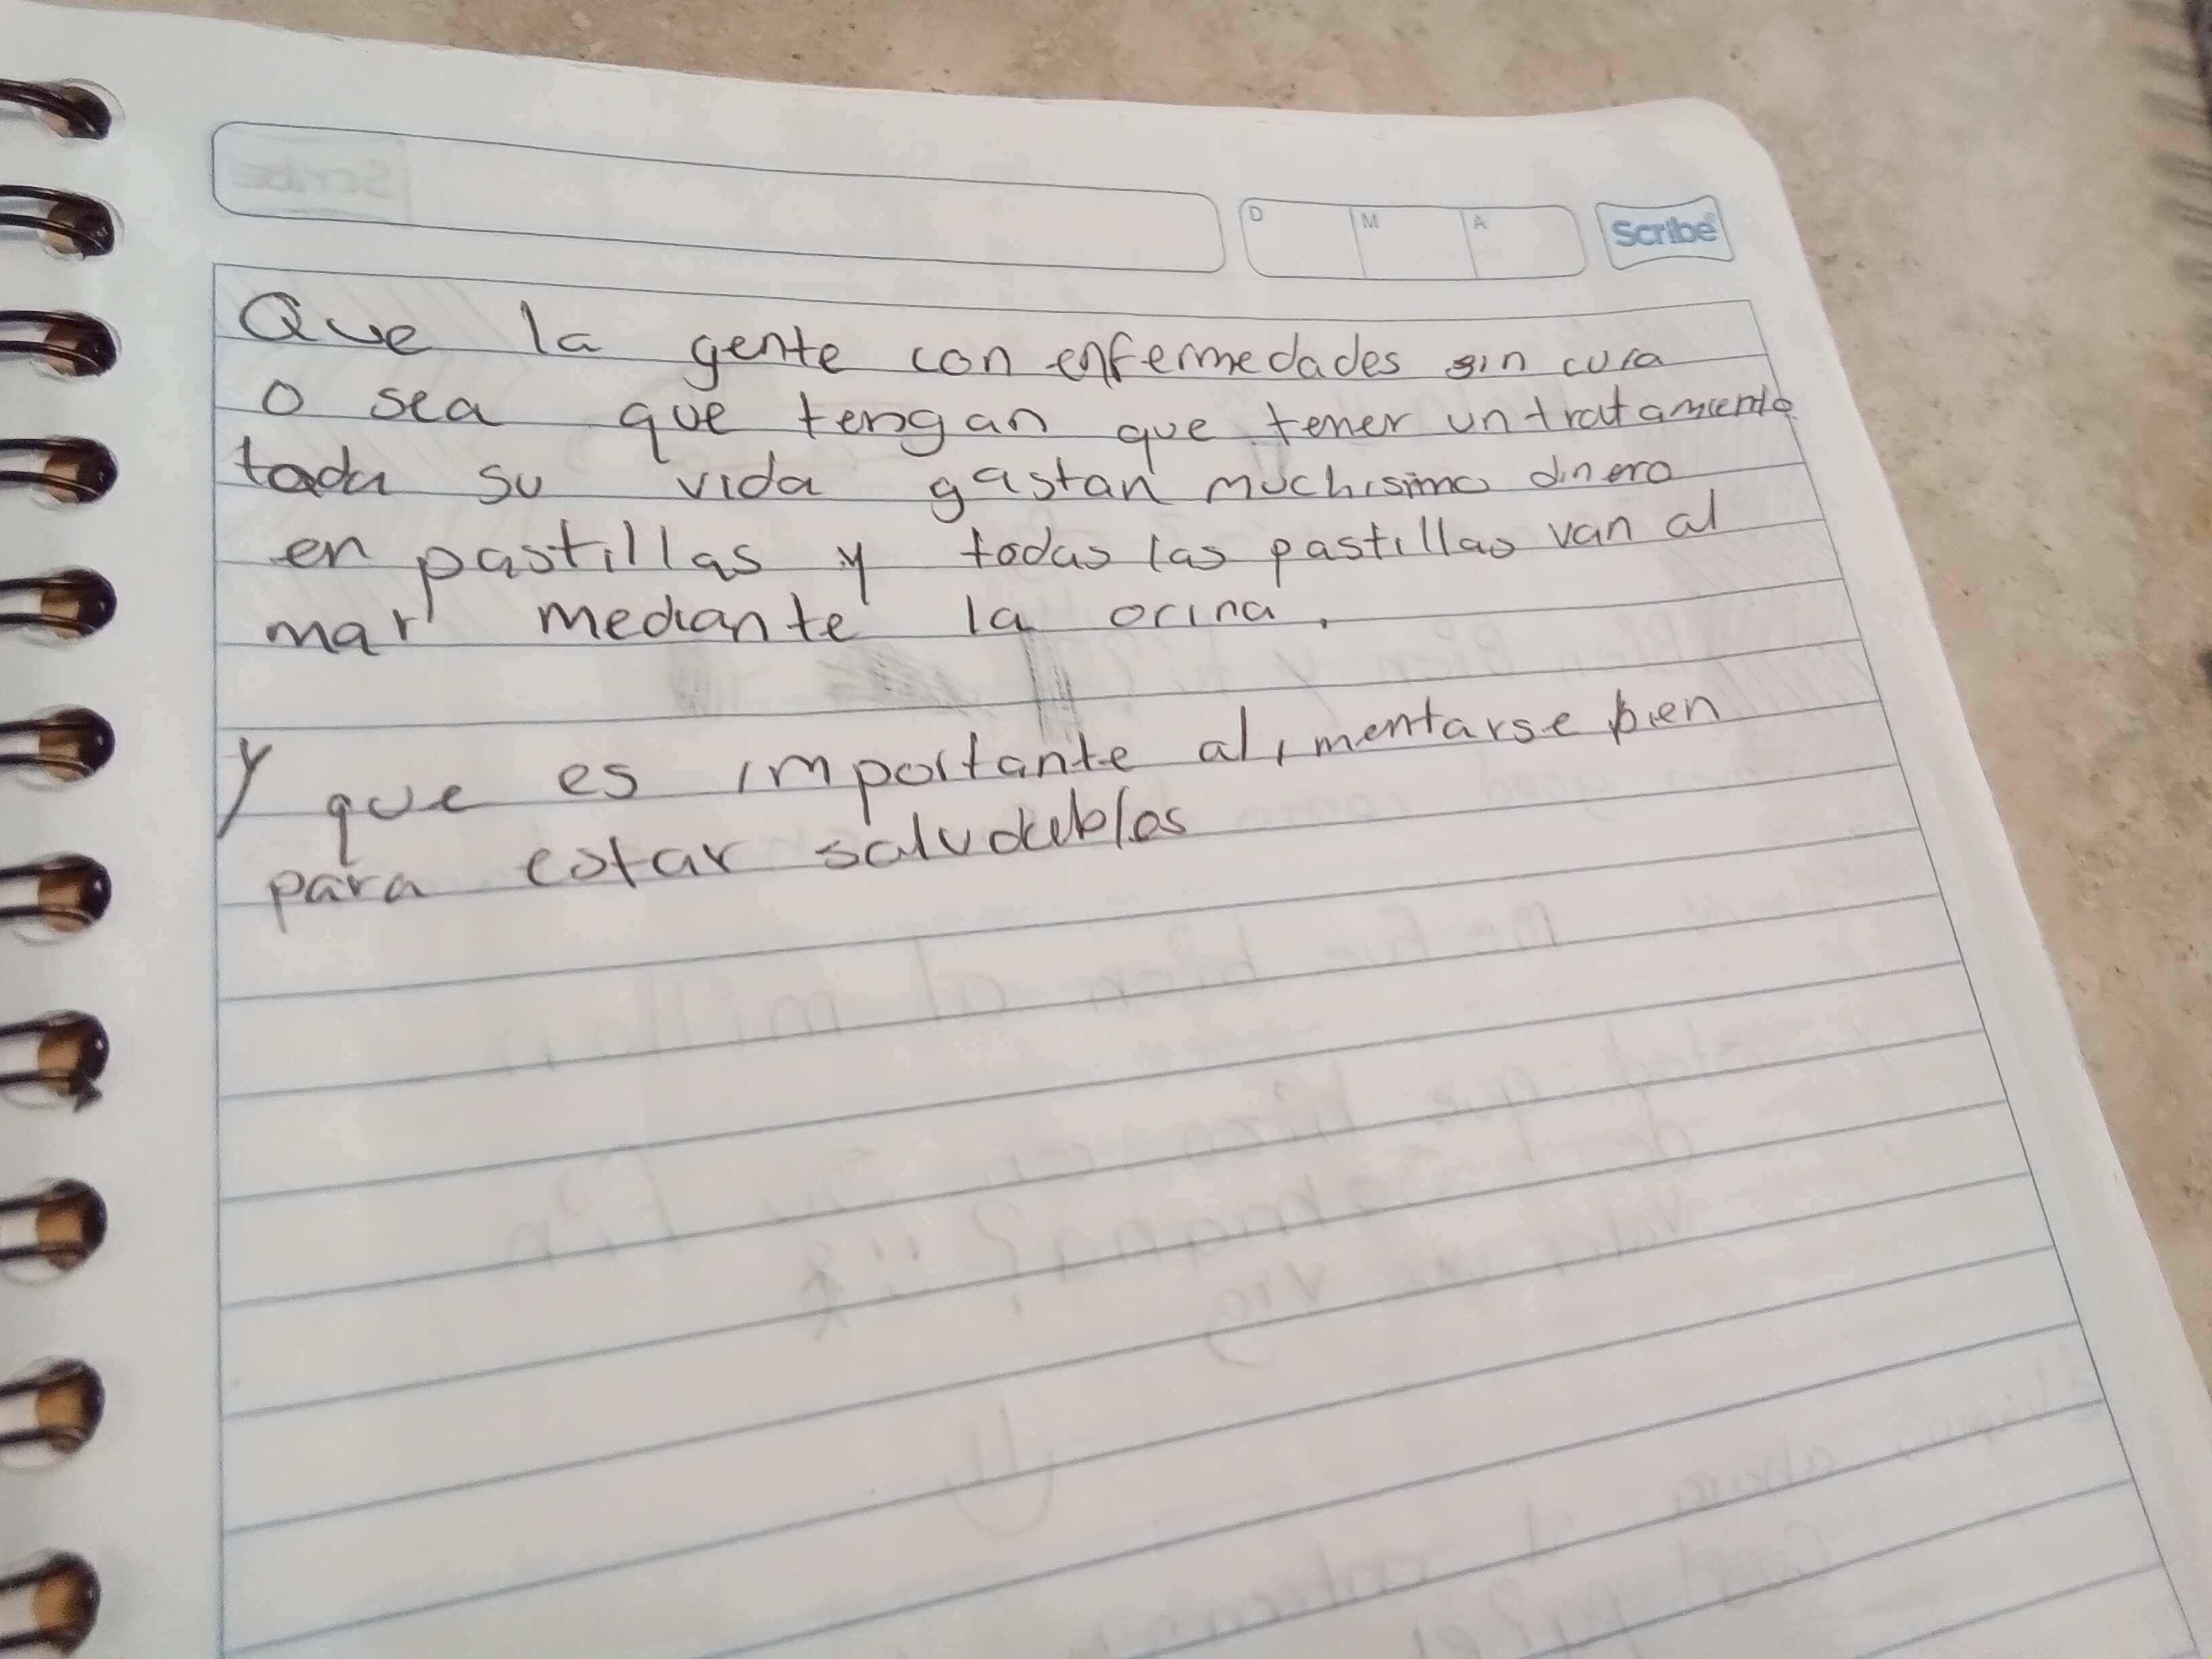 D M A Scribe
Que la gente con enfermedades sin cura
o sea que tengan que tener un tratamiento
toda su vida gastan muchisimo dinero
en pastillas y todas las pastillas van al
mar mediante la orina.
y que es importante alimentarse bien
para estar saludables